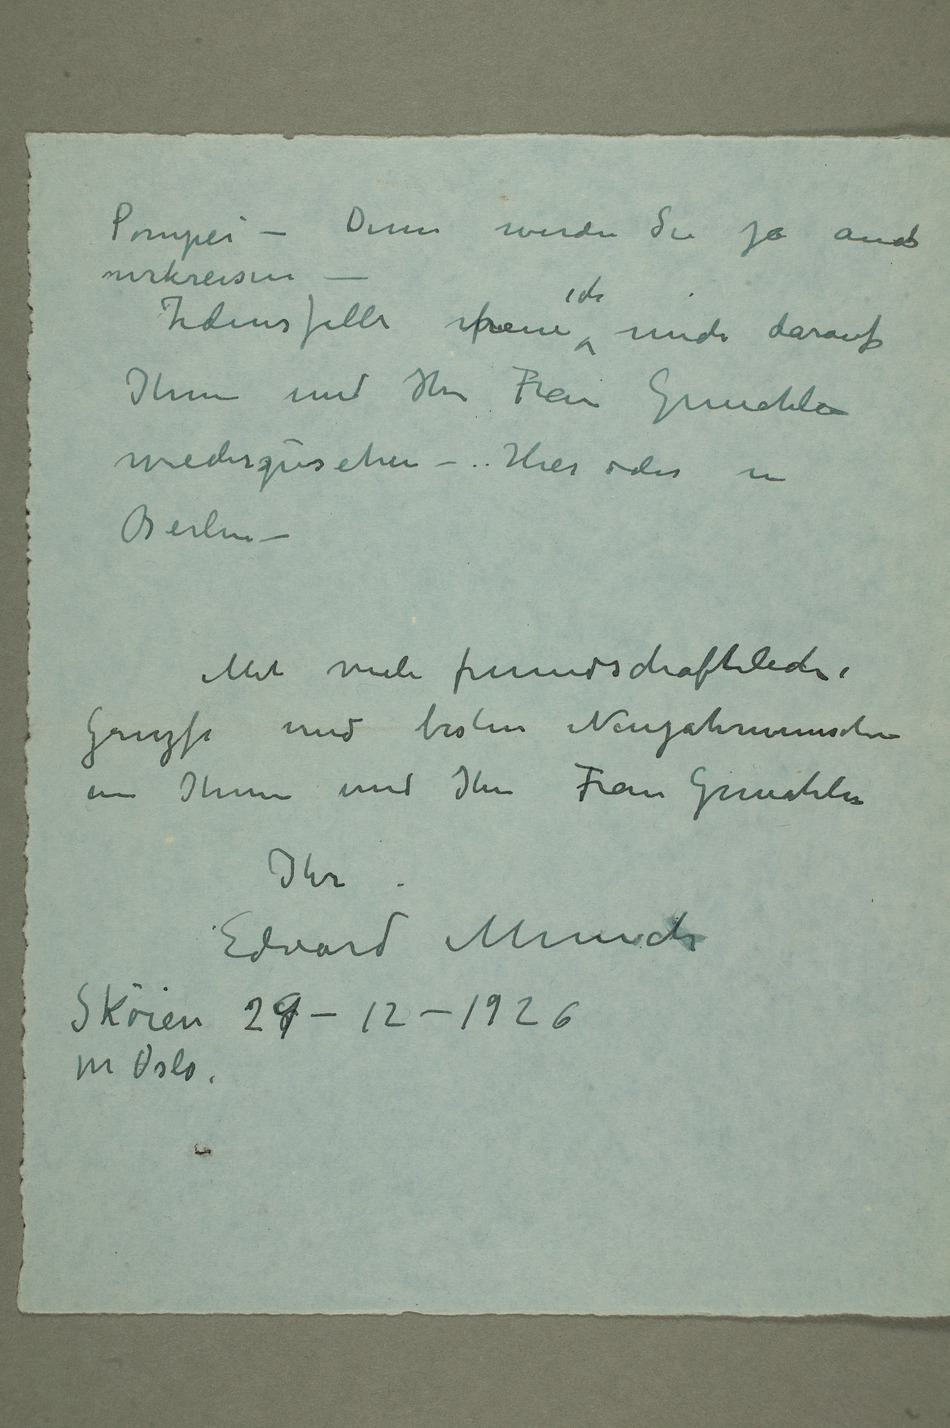 Pompei – Denn werden Sie ja auch
umkreisen –
Jedensfalls freue ich mich darauf
Ihnen und Ihre Frau Gemahlin
wiederzusehen – .. Hier oder in
Berlin –
Mit viele freundschaftlichen
Grüsse und besten Neujahrwunschen
an Ihnen und Ihre Frau Gemahlin
Ihr
Edvard Munch
Sköien 29 – 12 – 1926
pr Oslo.